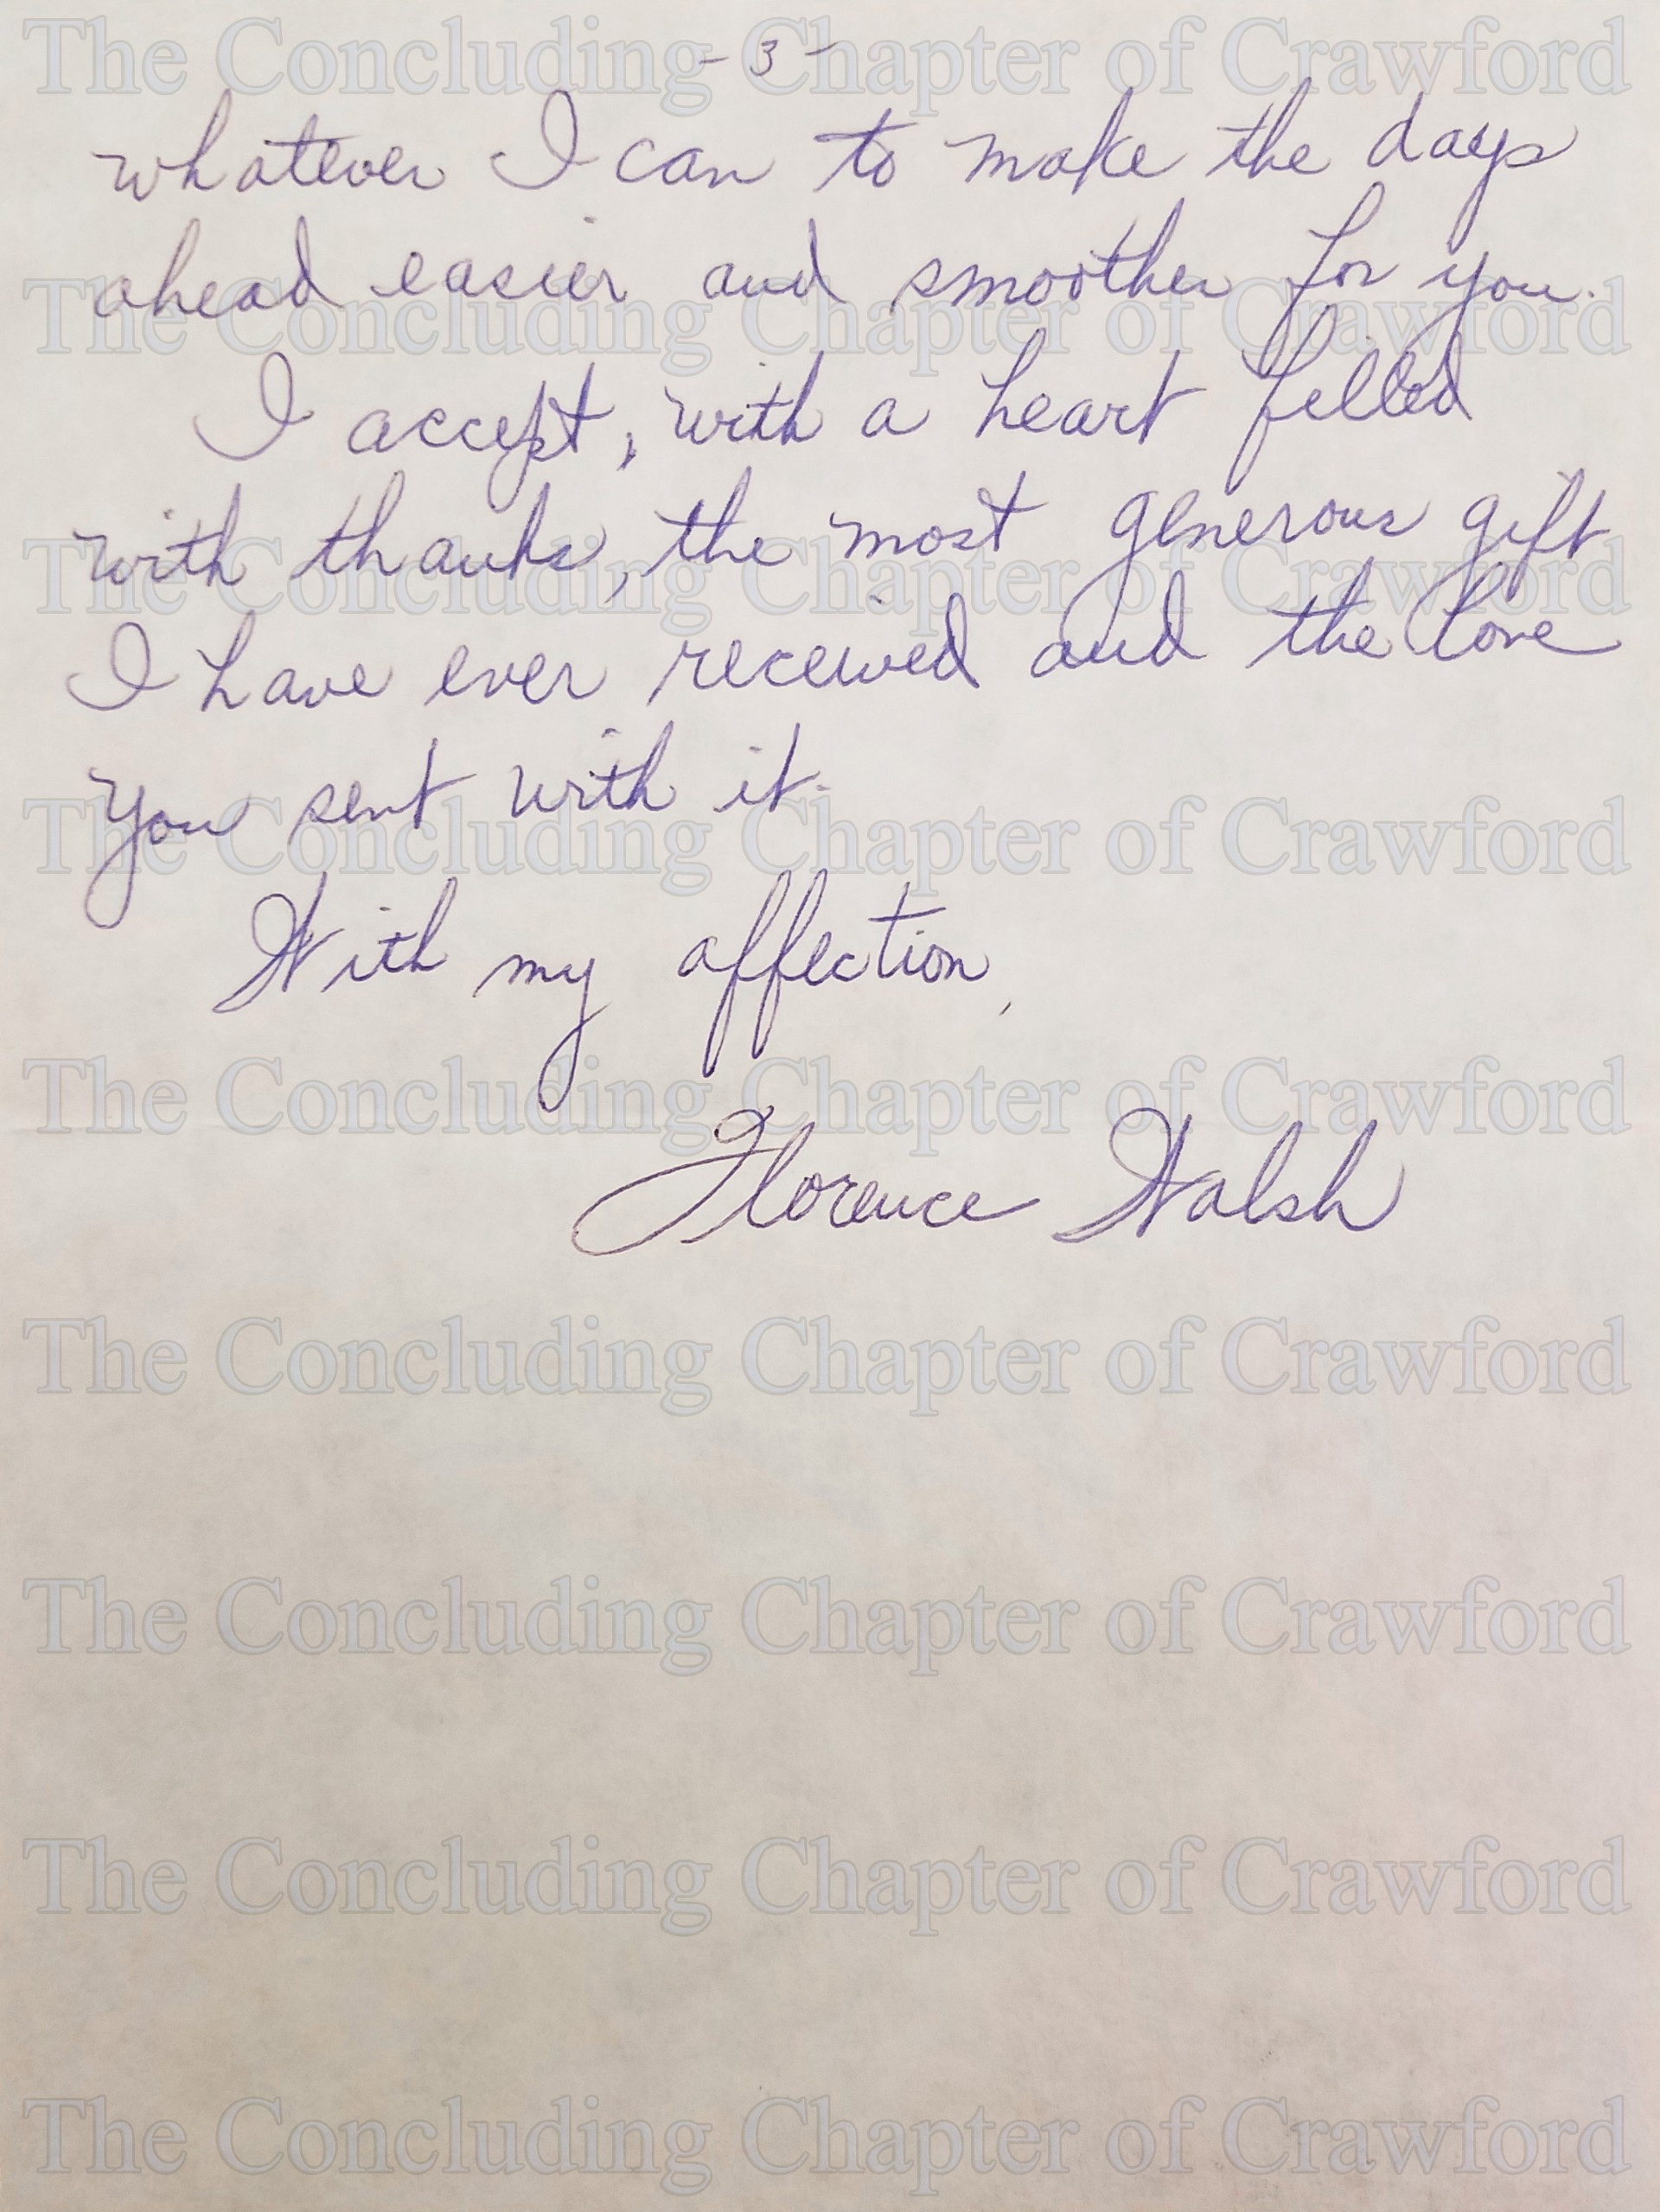 The Concluding Chapter of Crawford
- 3 -
whatever I can to make the days
ahead easier and smoother for you.
The Concluding Chapter of Crawford
I accept, with a heart filled
with thanks, the most generous gift
The Concluding Chapter of Crawford
I have ever received and the love
you sent with it.
The Concluding Chapter of Crawford
With my affection,
The Concluding Chapter of Crawford
Florence Walsh
The Concluding Chapter of Crawford
The Concluding Chapter of Crawford
The Concluding Chapter of Crawford
The Concluding Chapter of Crawford